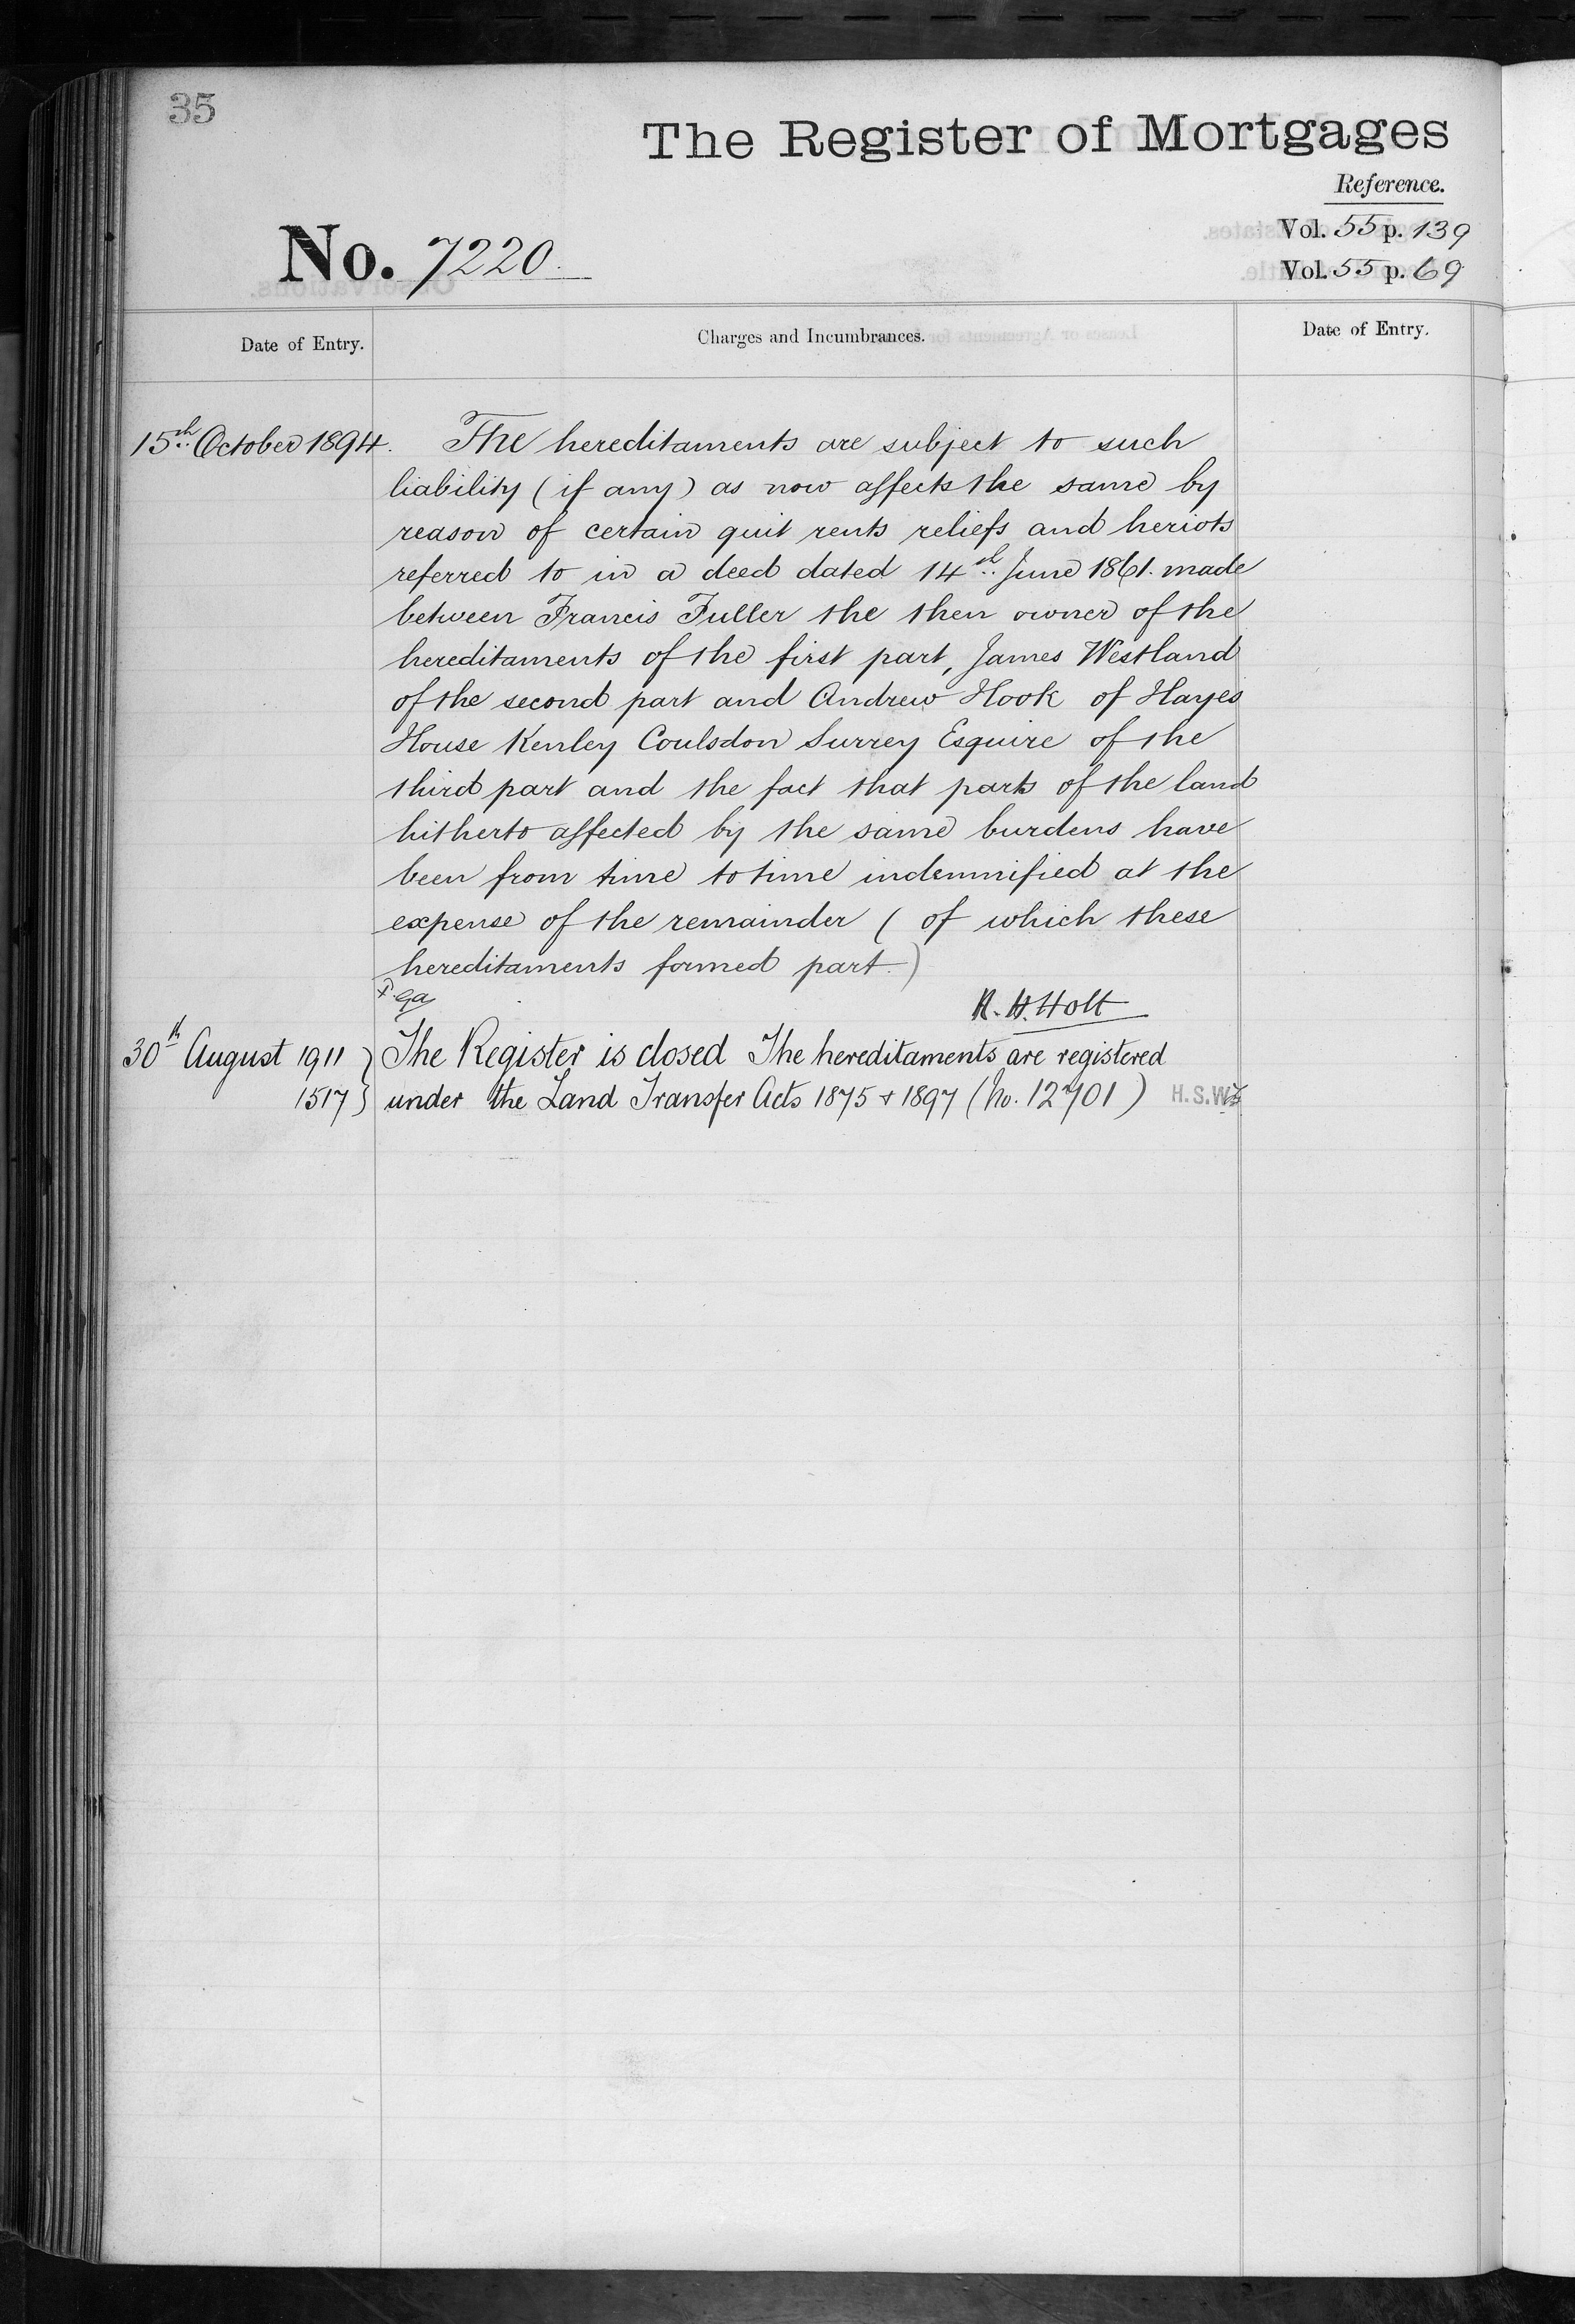 35
The Register of Mortgages
Reference.
Vol. 55 p. 139
No. 7220.
Vol. 55 p. 69
Date of Entry.
Charges and Incumbrances.
Date of Entry.
15th October 1894. The hereditaments are subject to such
liability (if any) as now affects the same by
reason of certain quit rents reliefs and heriots
referred to in a deed dated 14th June 1861. made
between Francis Fuller the then owner of the
hereditaments of the first part, James Westland
of the second part and Andrew Hook of Hayes
House Kenley Coulsdon Surrey Esquire of the
third part and the fact that parts of the land
hitherto affected by the same burdens have
been from time to time indemnified at the
expense of the remainder (of which these
hereditaments formed part.)
R. H. Holt
30th August 1911 } The Register is closed The hereditaments are registered
1517 } under the Land Transfer Acts 1875 & 1897 (No. 12701) H.S.W